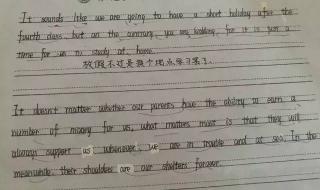 It sounds like we are going to have a short holiday after the
fourth class, but on the contrary, you are kidding, for it is just a
time for us to study at home.
放假不过是换个地点学习罢了.
It doesn't matter whether our parents have the ability to earn a
number of money for us, what matters most is that they will
always support us whenever we are in trouble and at sea. In the
meanwhile their shoulders are our shelters forever.